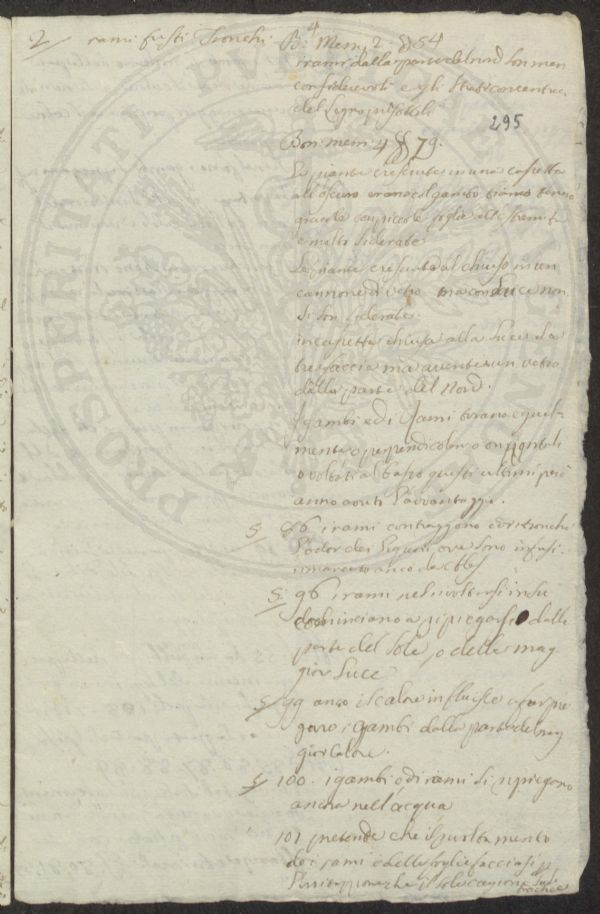 2 rami fusti Tronchi Bo: 4 Mem. 2. § 54
i rami dalla parte del nord son men
considerevoli e gli strati concentrici
del Legno più sottili
295
Bon: mem: 4 § 79.
Le piante cresciute in una cassetta
all'oscuro erano col gambo bianco tenero
gracile con piccole foglie all' estremità
e molto siderate
Le piante cresciute al chiuso in un
cannone di vetro ma con luce non
si son siderate.
in cassetta chiusa alla luce da
tre faccia ma avente un vetro
dalla parte del Nord.
I gambi ed i Rami tirano egual
mente o perpendicolari o orizzontali
o voltati al basso questi ultimi però
anno avuti l'avvantaggio.
5 86 i rami contraggono ed i tronchi
l'odor dei liquori ove sono infusi.
5. 96 i rami nel
cominciano a ripiegarsi dalla
parte del Sole, o della mag
gior Luce
5 99 anco il calore influisce a far pie
gare i gambi dalla parte del mag
gior Calore.
5 100. i gambi o di rami si ripiegano
ancora nell'acqua
101 pretende che il
dei rami e delle foglie facciasi p
che il sole cagiona sulle
trachee
PROSPERITATI PVBLICAE